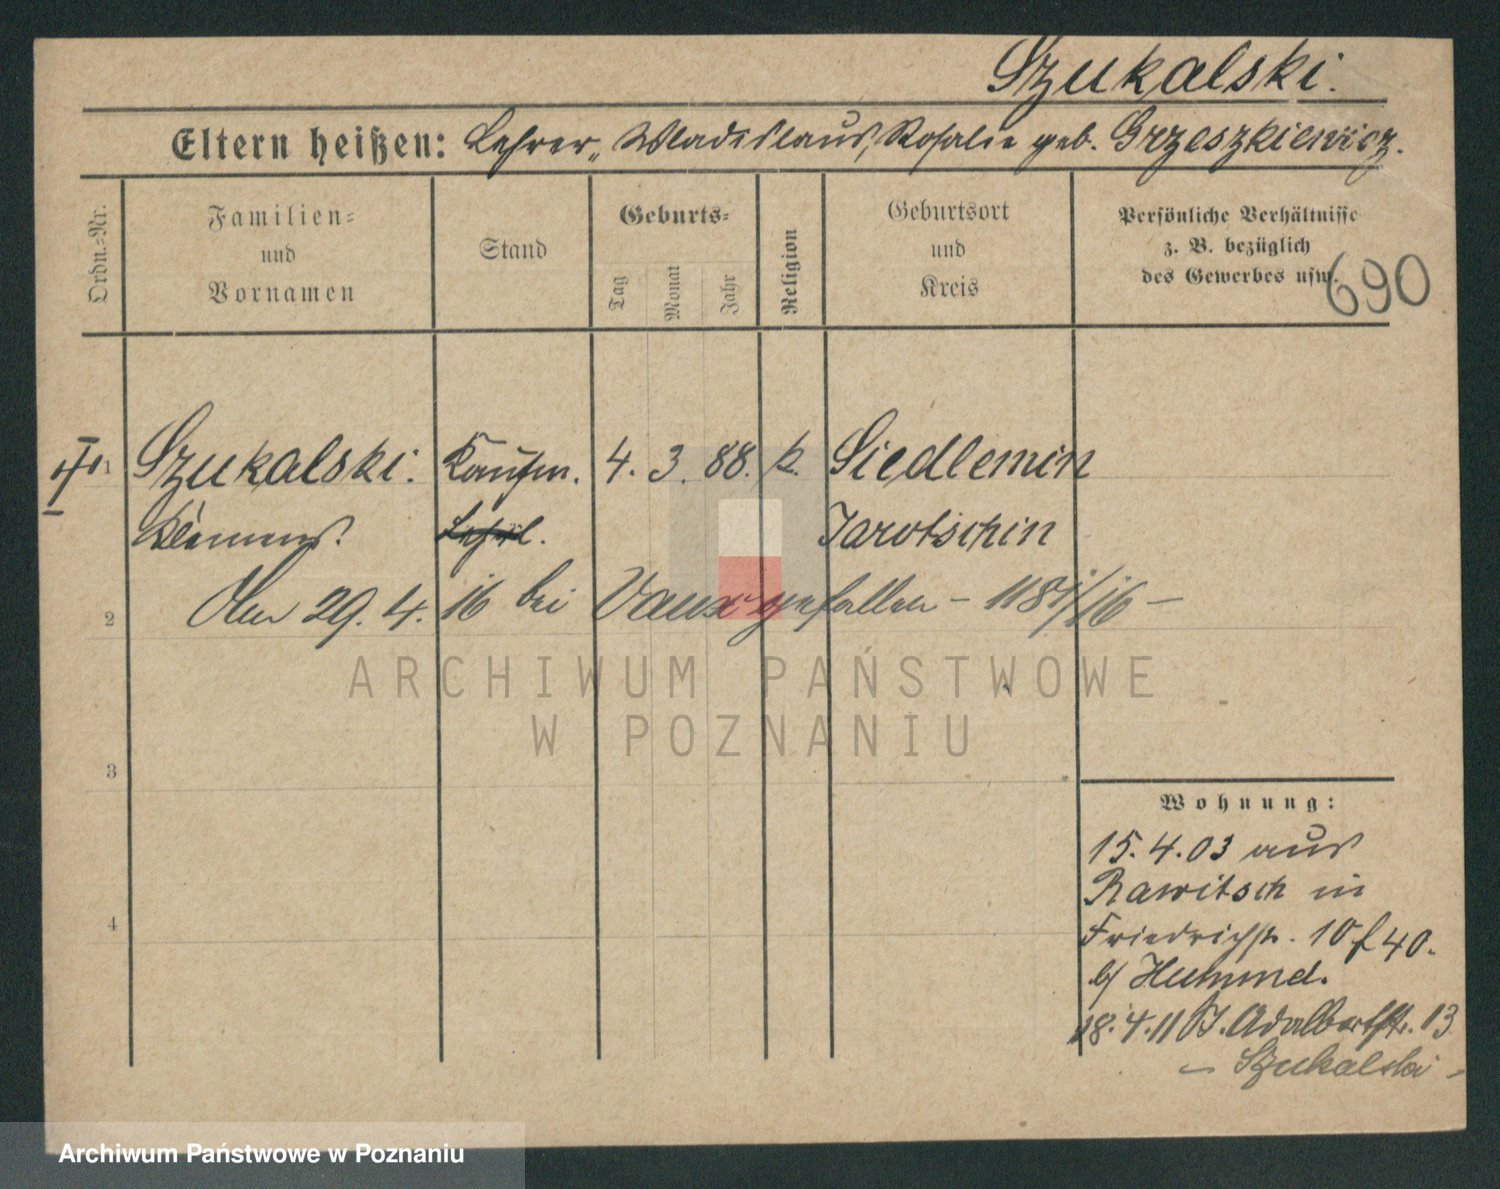 Szukalski.
Eltern heißen: Lehrer, Wladislaus, Rosalie geb. Grzeszkiewicz.
Ordn.-Nr.
Familien-
und
Vornamen
Stand
Geburts-
Tag
Monat
Jahr
Religion
Geburtsort
und
Kreis
Persönliche Verhältnisse
z. B. bezüglich
des Gewerbes usw.
690
1 Szukalski. Kaufm. 4. 3. 88. k. Siedlemin
Klemens. Lehrl. Jarotschin
2 Am 29. 4. 16 bei Vaux gefallen – 1181/16 –
3
4
Wohnung:
15.4.03 aus
Rawitsch in
Friedrichstr. 10 f 40.
b/ Hummel.
18.4.11 J. Adalbertstr. 13
– Szukalski –
ARCHIWUM PAŃSTWOWE
W POZNANIU
Archiwum Państwowe w Poznaniu